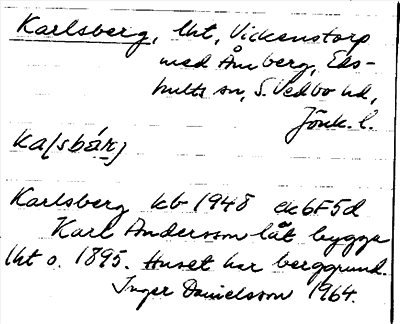 Karlsberg, lht, Vickenstorp
med Åmberg, Eds-
hults sn, S. Vedbo hd,
Jönk. l.
ka[sbärj
Karlsberg kb 1948 ek 6F5d
Karl Andersson lät bygga
lht o. 1895. Huset har berggrund.
Inger Danielsson 1964.